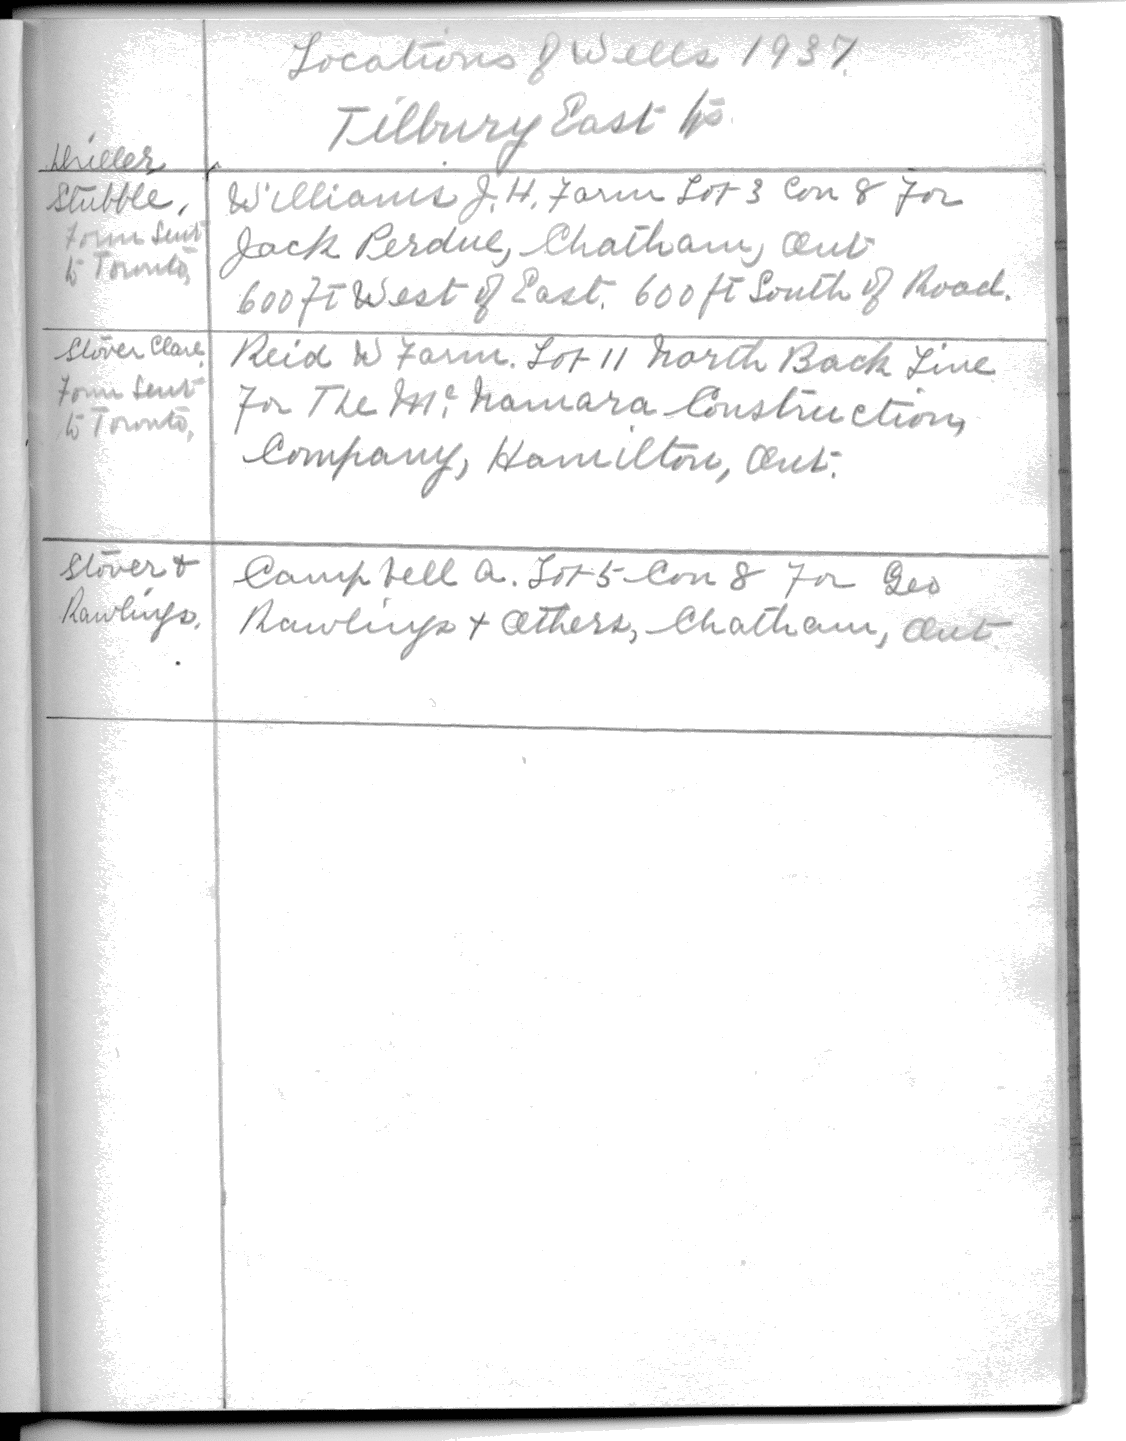 Locations of Wells 1937.
Tilbury East Tp.
Driller
Stubble,
Form Sent
to Toronto,
Williams J. H. Farm Lot 3 Con 8 For
Jack Perdue, Chatham, Ont
600 ft West of East. 600 ft South of Road.
Stover Clare.
Form Sent
to Toronto,
Reid W Farm. Lot 11 North Back Line
For The Mc. Namara Construction,
Company, Hamilton, Ont.
Stover &
Rawlings.
Campbell A. Lot 5 Con 8 For Geo
Rawlings + Others, Chatham, Ont.